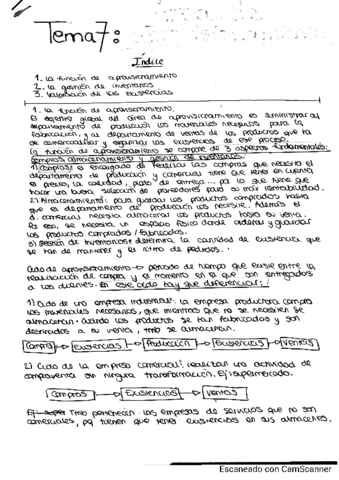 Tema 7:
Índice
1. La función de aprovisionamiento
2. la gestión de inventarios
3. Valoración de las existencias
1. la función de aprovisionamiento.
El objetivo global del área de aprovisionamiento es suministrar al
departamento de producción los materiales necesarios para la
fabricación, y al departamento de ventas de los productos que ha
de comercializar y organizar las existencias de ese proceso.
la función de aprovisionamiento se compone de 3 aspectos fundamentales:
compras almacenamiento y gestión de inventarios.
1) compras: es encargado de realizar las compras que necesita el
departamento de producción y comercial tiene que tener en cuenta
el precio, la calidad, plazo de entrega... por lo que tiene que
hacer una buena selección de proveedores para su mayor rentabilidad.
2) Almacenamiento: para guardar los productos comprados hasta
que el departamento de producción los necesite. Además el
d. comercial necesita almacenar los productos hasta su venta.
Por eso, se necesita un espacio físico donde ordenar y guardar
los productos comprados / fabricados.
3) Gestión de inventarios: determina la cantidad de existencias que
se han de mantener y el ritmo de pedidos.
Ciclo de aprovisionamiento → periodo de tiempo que existe entre la
realización de compra y el momento en el que son entregados
a los clientes. En este ciclo hay que diferenciar:
1) Ciclo de una empresa industrial: la empresa productora compra
los materiales necesarios, que mientras que no se necesiten se
almacenan. Cuando los productos se han fabricados y son
destinados a su venta, tmb se almacenan.
Compras → Existencias → Producción → Existencias → Ventas
2) Ciclo de la empresa comercial: realizan una actividad de
compraventa sin ninguna transformación. Ej: supermercado.
Compras → Existencias → Ventas
Tmb pertenecen las empresas de servicios que no son
comerciales, pq tienen que tener existencias en sus almacenes.
Escaneado con CamScanner